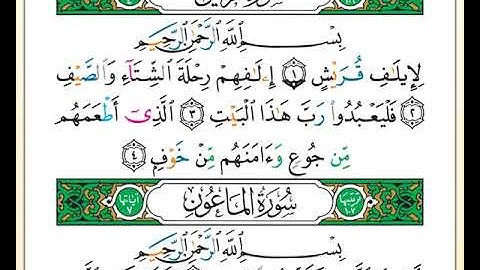 بِسْمِ ٱللَّهِ ٱلرَّحْمَٰنِ ٱلرَّحِيمِ
لِإِيلَٰفِ قُرَيْشٍ ١ إِۦلَٰفِهِمْ رِحْلَةَ ٱلشِّتَآءِ وَٱلصَّيْفِ
٢ فَلْيَعْبُدُوا۟ رَبَّ هَٰذَا ٱلْبَيْتِ ٣ ٱلَّذِىٓ أَطْعَمَهُم
مِّن جُوعٍ وَءَامَنَهُم مِّنْ خَوْفٍۭ ٤
آياتها ٧ سُورَةُ المَاعُونِ ترتيبها ١٠٧
بِسْمِ ٱللَّهِ ٱلرَّحْمَٰنِ ٱلرَّحِيمِ